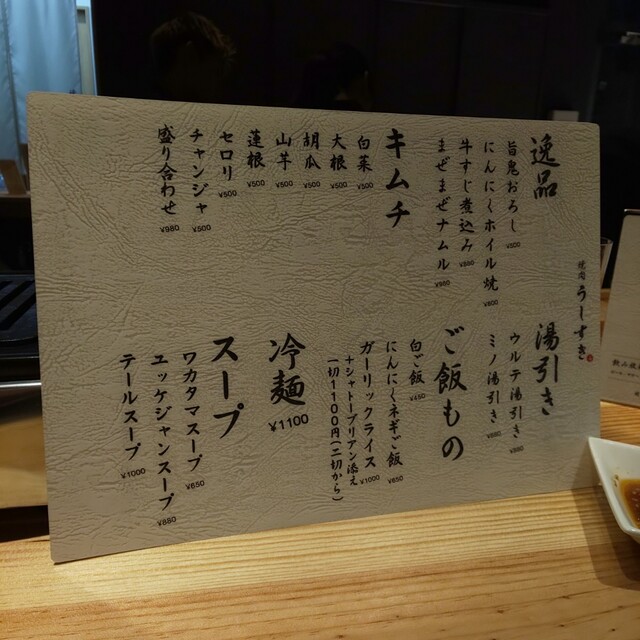 焼肉 うしすき
逸品
旨鬼おろし ¥500
にんにくホイル焼 ¥800
牛すじ煮込み
まぜまぜナムル ¥980
キムチ
白菜 ¥500
大根 ¥500
胡瓜 ¥500
山芋 ¥500
蓮根 ¥500
セロリ ¥500
チャンジャ ¥500
盛り合わせ ¥980
湯引き
ウルテ湯引き
ミノ湯引き
ご飯もの
白ご飯
にんにくネギご飯 ¥650
ガーリックライス ¥1000
+シャトーブリアン添え
(一切1100円(二切から)
冷麺 ¥1100
スープ
ワカタマスープ ¥650
ユッケジャンスープ ¥880
テールスープ ¥1000